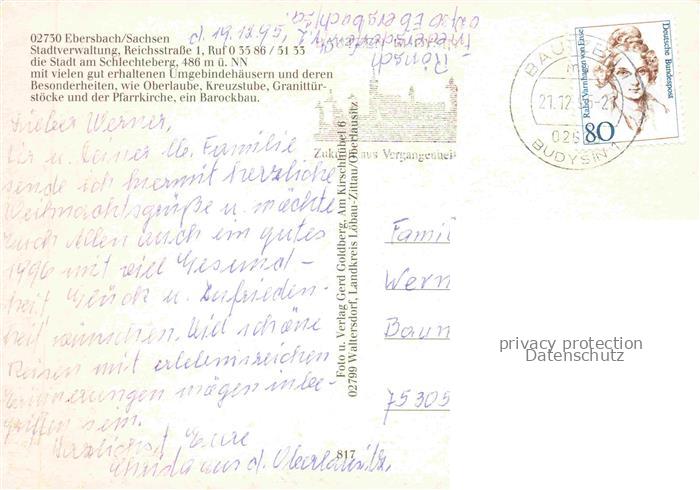 02730 Ebersbach/Sachsen
Stadtverwaltung, Reichsstraße 1, Ruf 0 35 86 / 51 33
die Stadt am Schlechteberg, 486 m ü. NN
mit vielen gut erhaltenen Umgebindehäusern und deren
Besonderheiten, wie Oberlaube, Kreuzstube, Granittür-
stöcke und der Pfarrkirche, ein Barockbau.
d. 19.12.95
Rönsch
02730 Ebersbach/Sa.
Lieber Werner,
Dir u. Deiner lb. Familie
sende ich hiermit herzliche
Weihnachtsgrüße u. möchte
Euch Allen auch ein gutes
1996 mit viel Gesund-
heit, Glück u. Zufrieden-
heit wünschen. Und schöne
Reisen mit erlebnisreichen
Erinnerungen mögen inbe-
griffen sein.
Herzlichst Eure
aus d. Oberlausitz.
Foto u. Verlag Gerd Goldberg, Am Kirschhübel 6
02799 Waltersdorf, Landkreis Löbau-Zittau/Oberlausitz
817
Zukunft aus Vergangenheit
BAUTZEN 1
21.12.95-21
026
BUDYŠIN 1
Deutsche Bundespost
Rahel Varnhagen von Ense
80
Famil
Wern
Baun
75305
privacy protection
Datenschutz